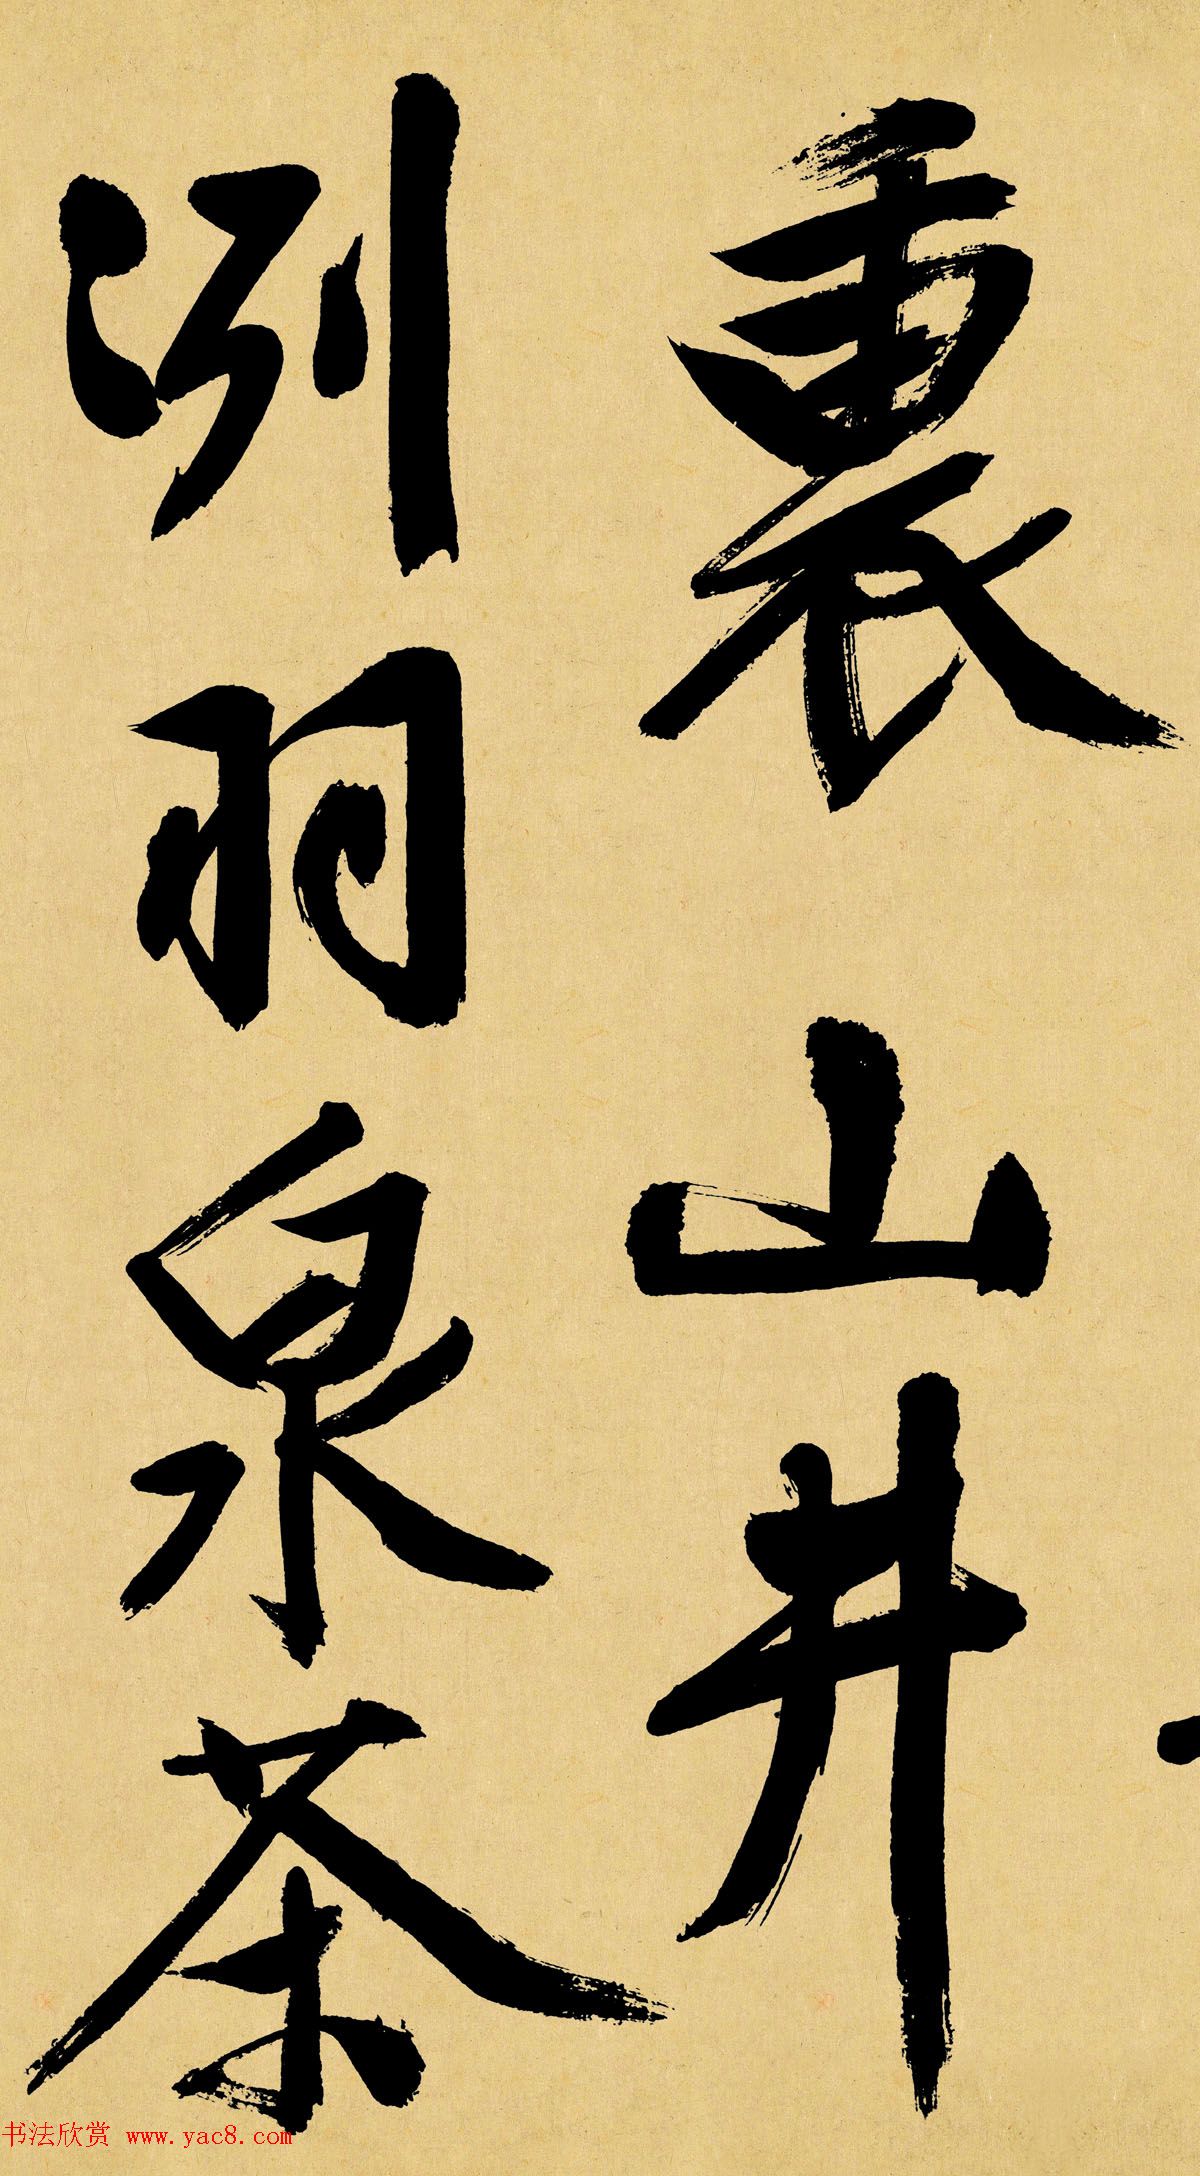 裏山井
冽羽泉茶
书法欣赏 www.yac8.com